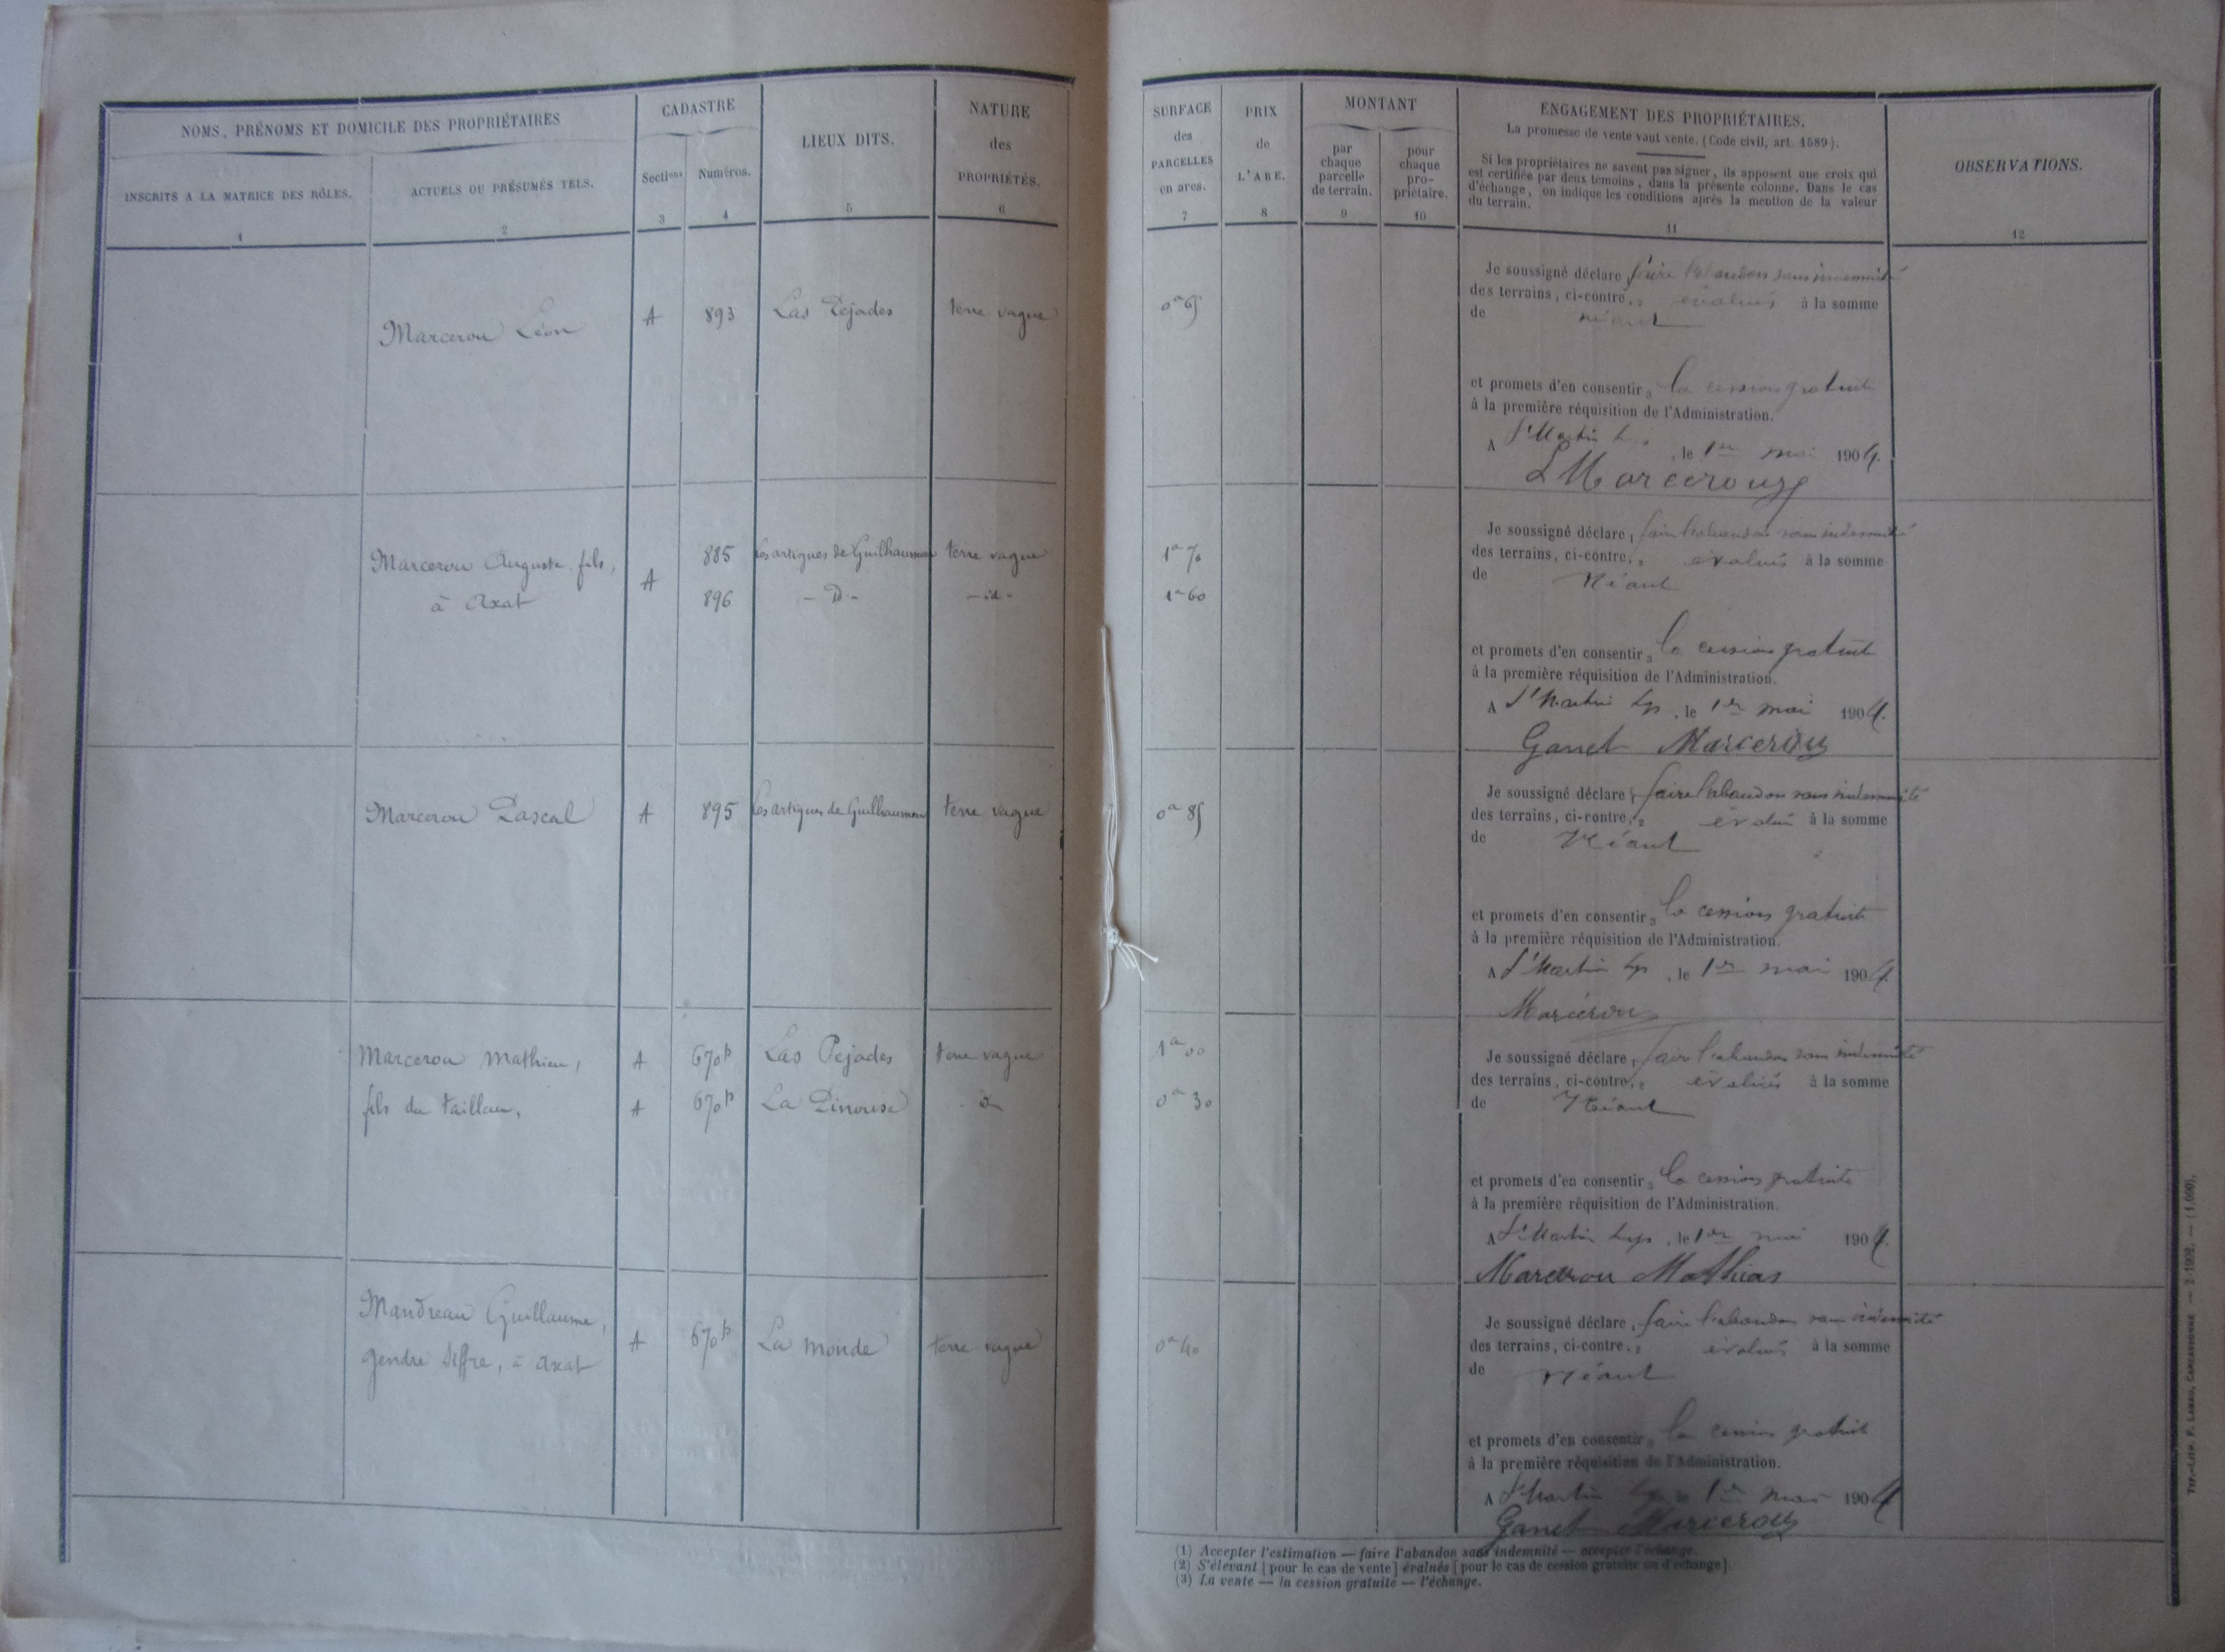 NOMS, PRÉNOMS ET DOMICILE DES PROPRIÉTAIRES
INSCRITS A LA MATRICE DES RÔLES.
1
ACTUELS OU PRÉSUMÉS TELS.
2
CADASTRE
Sections
3
Numéros.
4
LIEUX DITS.
5
NATURE
des
PROPRIÉTÉS.
6
SURFACE
des
PARCELLES
en ares.
7
PRIX
de
L'ARE.
8
MONTANT
par
chaque
parcelle
de terrain.
9
pour
chaque
pro-
priétaire.
10
ENGAGEMENT DES PROPRIÉTAIRES.
La promesse de vente vaut vente. (Code civil, art. 1589).
Si les propriétaires ne savent pas signer, ils apposent une croix qui
est certifiée par deux témoins, dans la présente colonne. Dans le cas
d'échange, on indique les conditions après la mention de la valeur
du terrain.
11
OBSERVATIONS.
12
Marcerou Léon
A 893 Las Pejades terre vague
0a 65
Je soussigné déclare, faire l'abandon sans indemnité
des terrains, ci-contre, 2 évalués à la somme
de néant
et promets d'en consentir 3 la cession gratuite
à la première réquisition de l'Administration.
A St Martin, le 1er mai 1904.
L Marcerou
Marcerou Auguste fils,
à Axat
A
885 Los artigues de Guilhaumou terre vague
896 - D.- - id -
1a 70
1a 60
Je soussigné déclare 1 faire l'abandon sans indemnité
des terrains, ci-contre, 2 évalués à la somme
de Néant
et promets d'en consentir 3 la cession gratuite
à la première réquisition de l'Administration.
A St Martin Lys, le 1er mai 1904.
Ganet Marcerou
Marcerou Pascal
A 895 Los artigues de Guilhaumou terre vague
0a 85
Je soussigné déclare 1 faire l'abandon sans indemnité
des terrains, ci-contre, 2 évalués à la somme
de Néant
et promets d'en consentir 3 la cession gratuite
à la première réquisition de l'Administration.
A St Martin Lys, le 1er mai 1904.
Marcerou
Marcerou Mathieu,
fils du tailleur,
A 670p Las Pejades terre vague
A 670p La Pinouse
1a 00
0a 30
Je soussigné déclare 1 faire l'abandon sans indemnité
des terrains, ci-contre, 2 évalués à la somme
de Néant
et promets d'en consentir 3 la cession gratuite
à la première réquisition de l'Administration.
A St Martin Lys, le 1er mai 1904.
Marcerou Mathias
Mandreau Guillaume,
gendre Siffre, à Axat
A 670p La monde terre vague
0a 40
Je soussigné déclare 1 faire l'abandon sans indemnité
des terrains, ci-contre, 2 évalués à la somme
de Néant
et promets d'en consentir 3 la cession gratuite
à la première réquisition de l'Administration.
A St Martin Lys le 1er mai 1904
Ganet Marcerou
(1) Accepter l'estimation — faire l'abandon sans indemnité — accepter l'échange.
(2) S'élevant [pour le cas de vente] évalués [pour le cas de cession gratuite ou d'échange].
(3) La vente — la cession gratuite — l'échange.